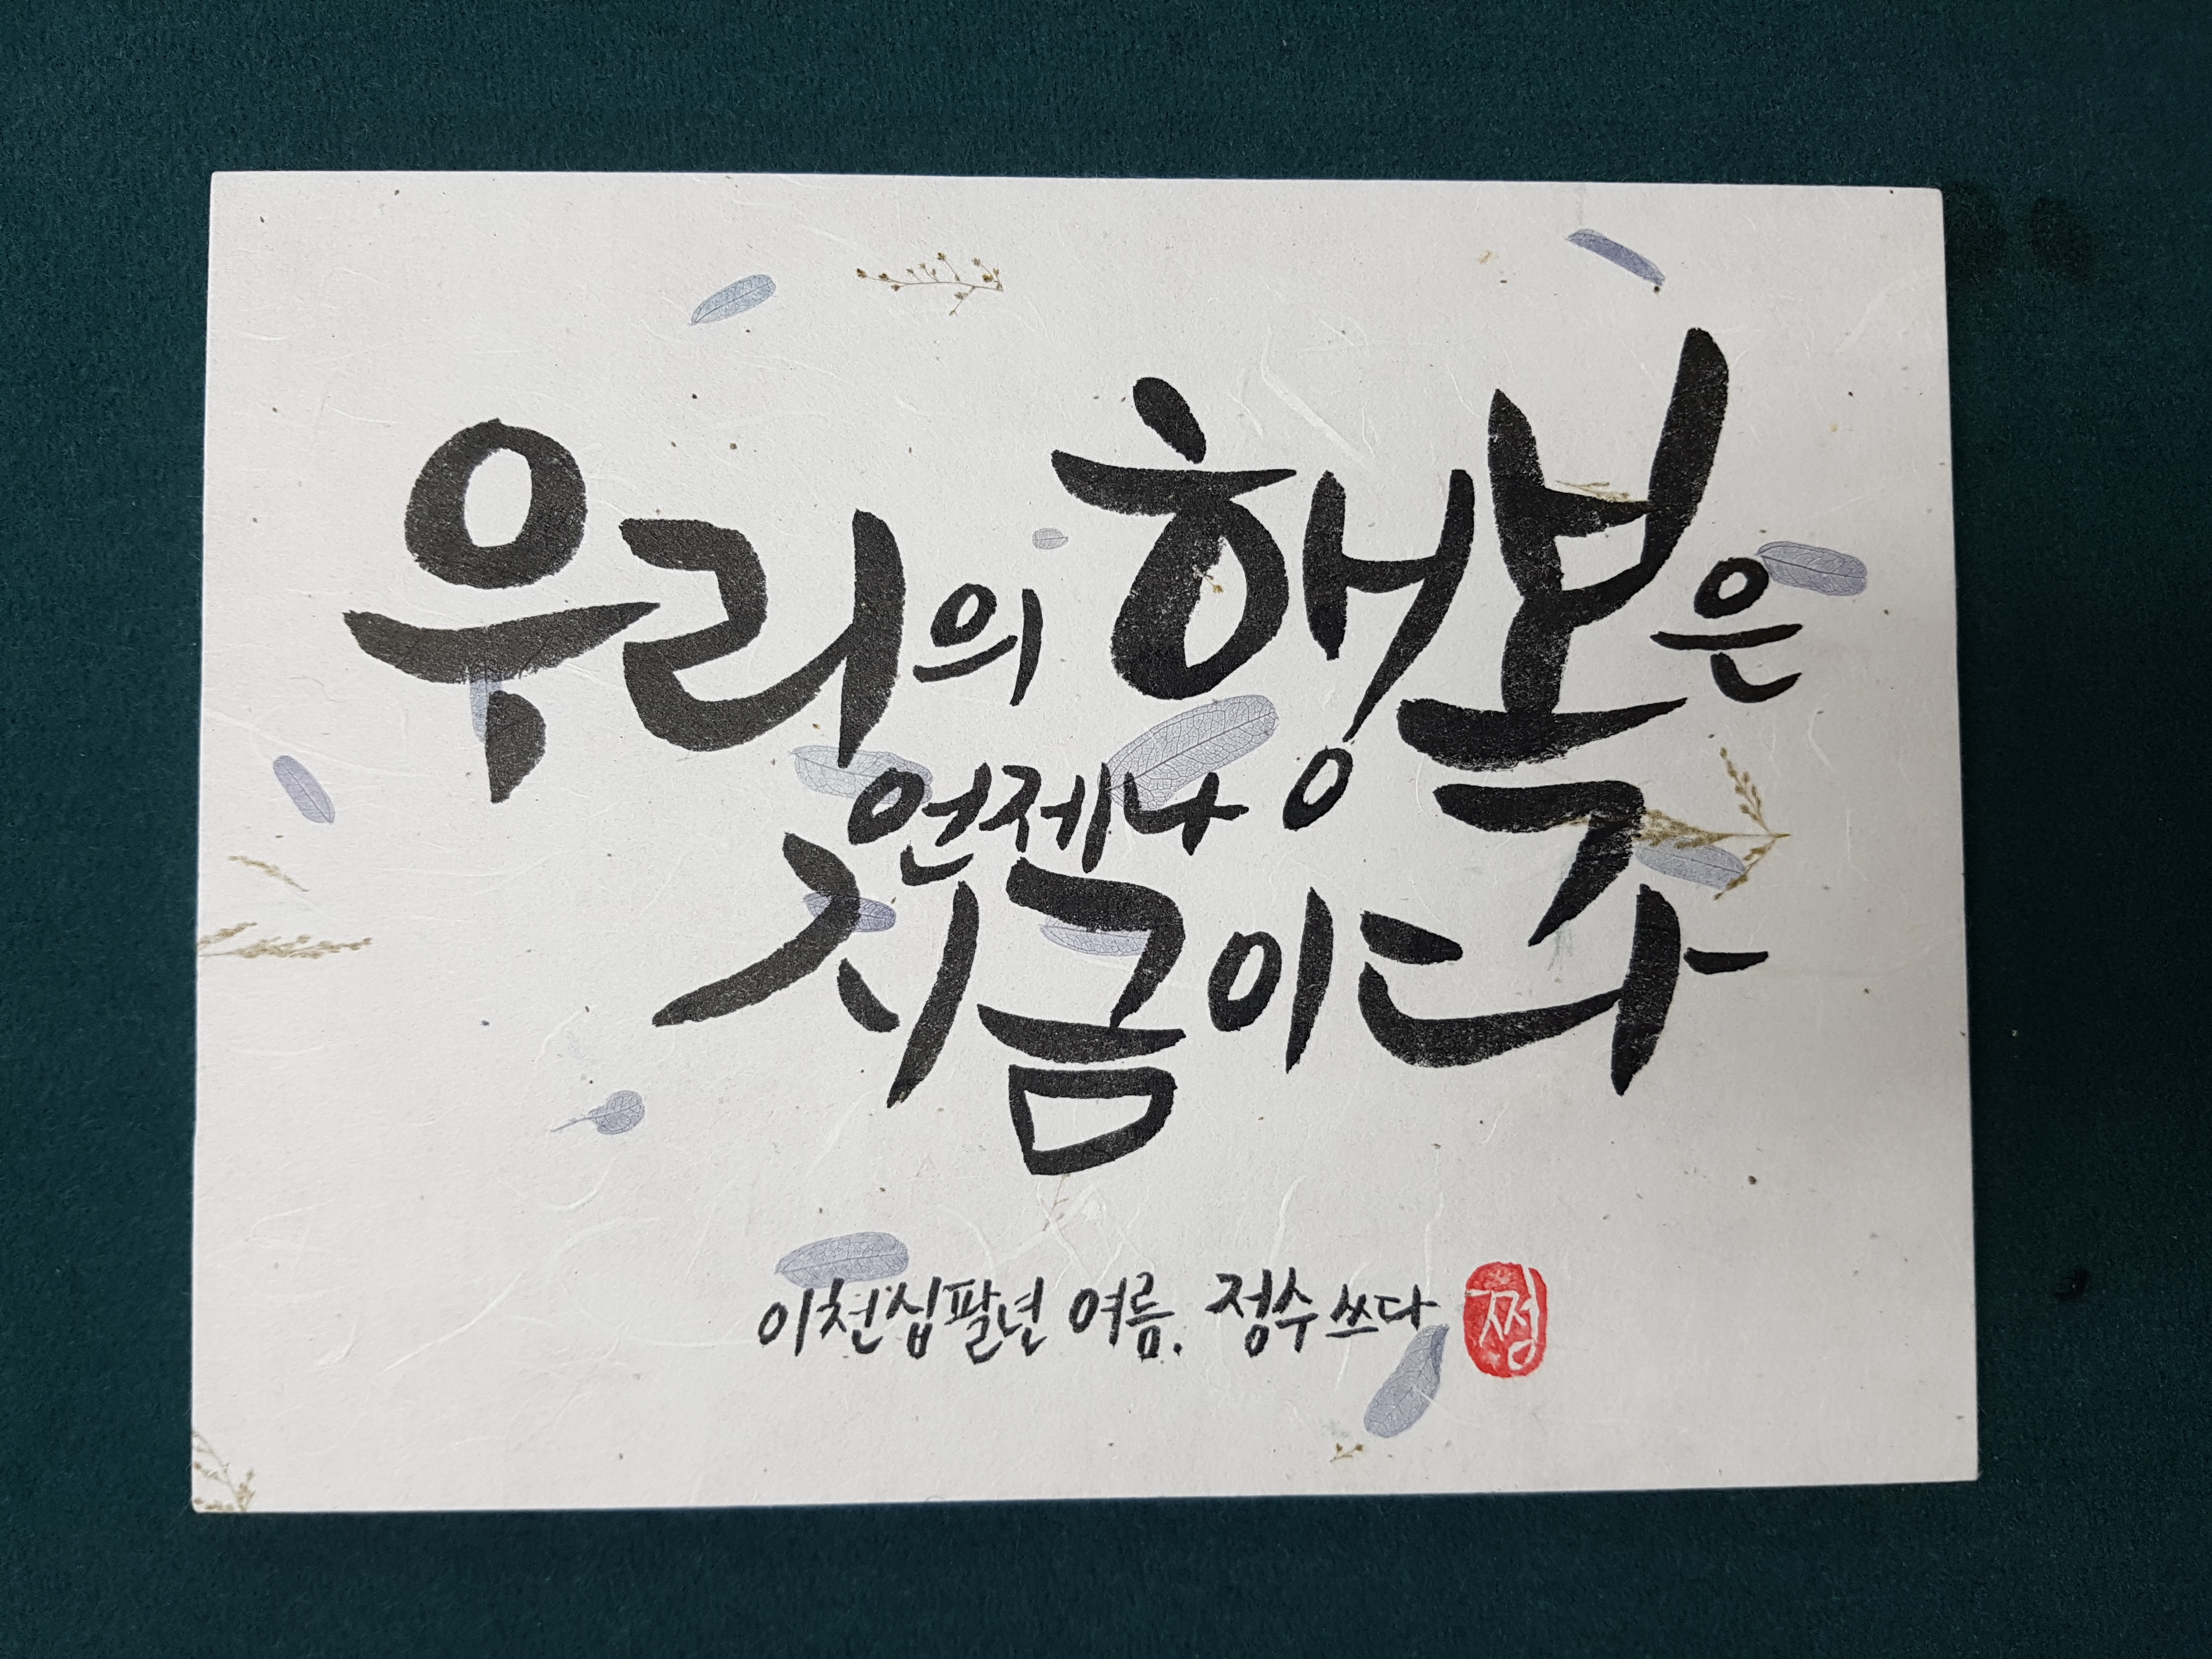 우리의 행복은
언제나
지금이다
이천십팔년 여름. 정수 쓰다
쩡